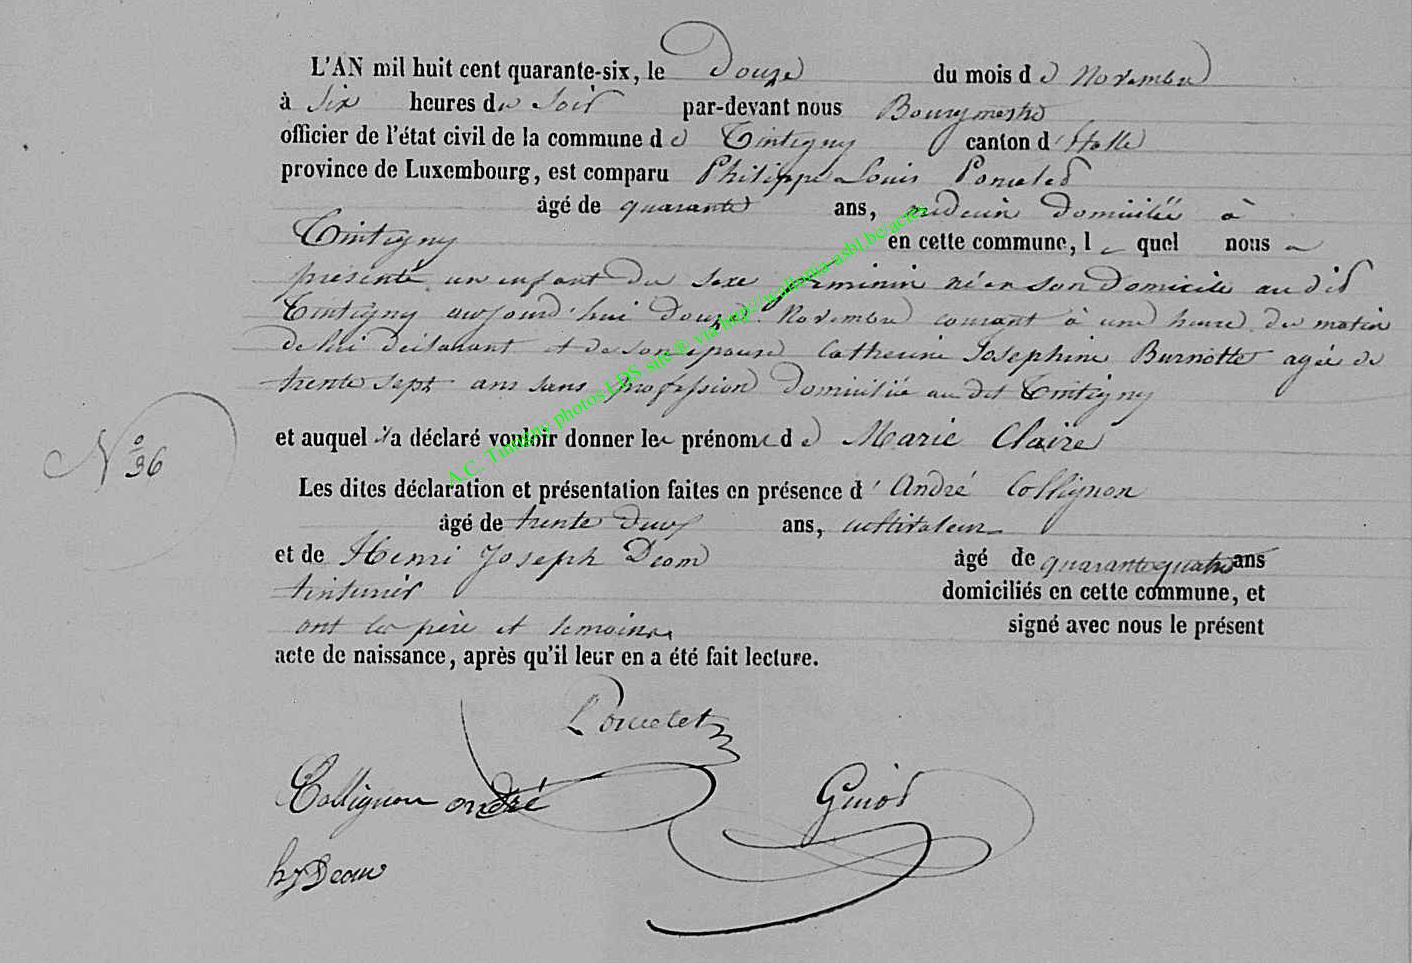 L'AN mil huit cent quarante-six, le Douze du mois de Novembre
à six heures du soir par-devant nous Bourgmestre
officier de l'état civil de la commune de Tintigny canton d'Etalle
province de Luxembourg, est comparu Philippe Louis Poncelet
âgé de quarante ans, médecin domicilié à
Tintigny en cette commune, le quel nous a
présenté un enfant du sexe féminin né en son domicile au dit
Tintigny aujourd'hui Douze Novembre courant à une heure du matin
de lui déclarant et de son épouse Catherine Josephine Burnotte agée de
trente sept ans sans profession domiciliée au dit Tintigny
et auquel il a déclaré vouloir donner les prénoms de Marie Claire
N° 36
Les dites déclaration et présentation faites en présence d'André Collignon
âgé de trente deux ans, instituteur
et de Henri Joseph Deom âgé de quarante quatre ans
teinturier domiciliés en cette commune, et
ont les père et témoins signé avec nous le présent
acte de naissance, après qu'il leur en a été fait lecture.
Poncelet
Collignon andré Guiot
hj Deom
A.C. Tintigny photos LDS site ® via http://wallonia-asbl.be/actes